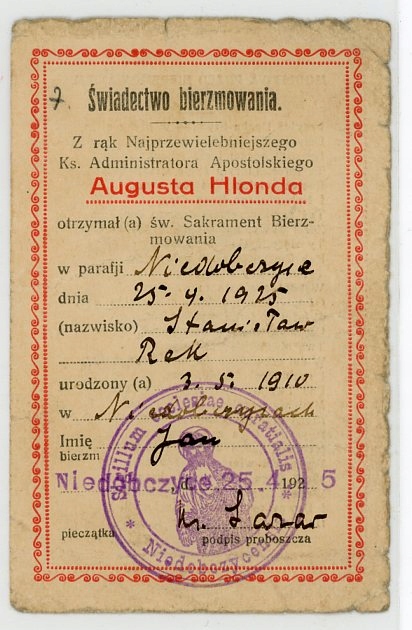 7
Świadectwo bierzmowania.
Z rąk Najprzewielebniejszego
Ks. Administratora Apostolskiego
Augusta Hlonda
otrzymał (a) św. Sakrament Bierz-
mowania
w parafji Niedobczyce
dnia 25. 4. 1925
(nazwisko) Stanisław
Rek
urodzony (a) 3. 5. 1910
w Niedobczycach
Imię Jan
bierzm
Niedobczyce 25. 4. 192 5
pieczątka
podpis proboszcza
Sigillum Ecclesiae
Niedobczycensis